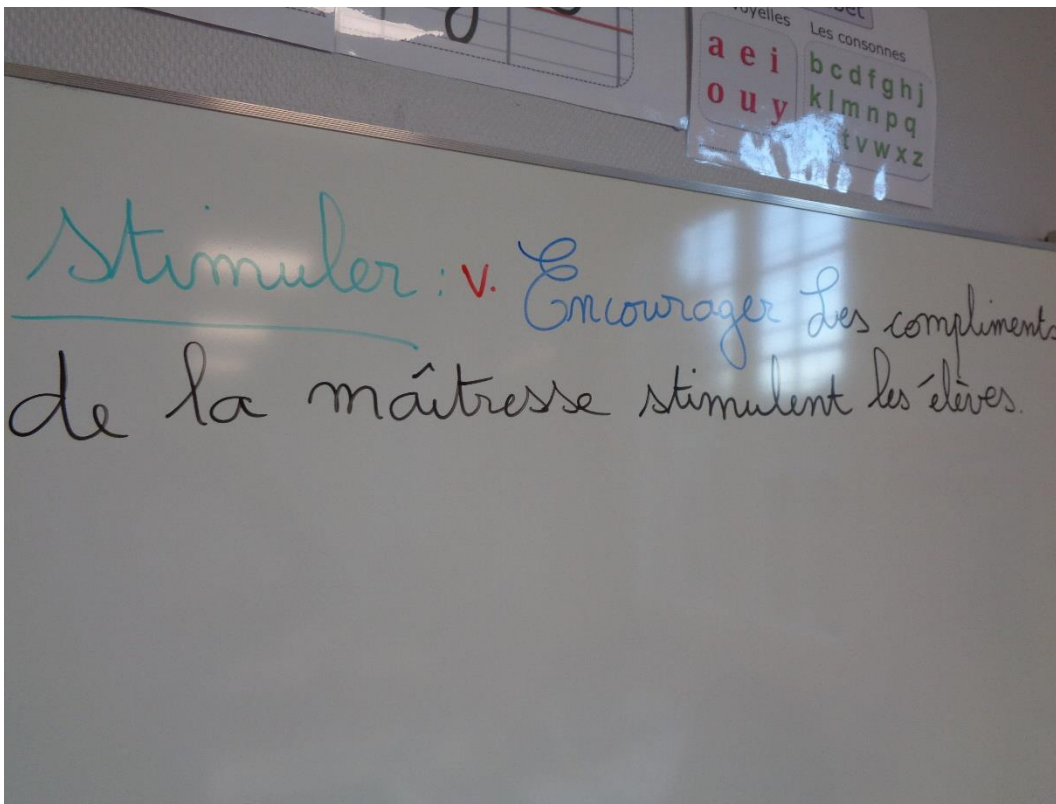 voyelles
Les consonnes
a e i
o u y
b c d f g h j
k l m n p q
t v w x z
Stimuler : v. Encourager Les compliments
de la maîtresse stimulent les élèves.